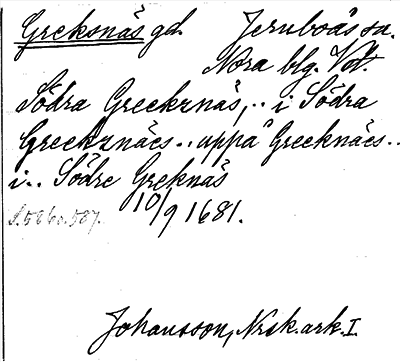 Greksnäs gd. Jernboås sn.
Nora blg. Vstm.
Södra Greecknäs,.. i Södra
Greecknäes.. uppå Greecknäes..
i.. Södre Greknäs
10/9 1681.
S. 586 o. 587.
Johansson, Nrsk. ark. I.